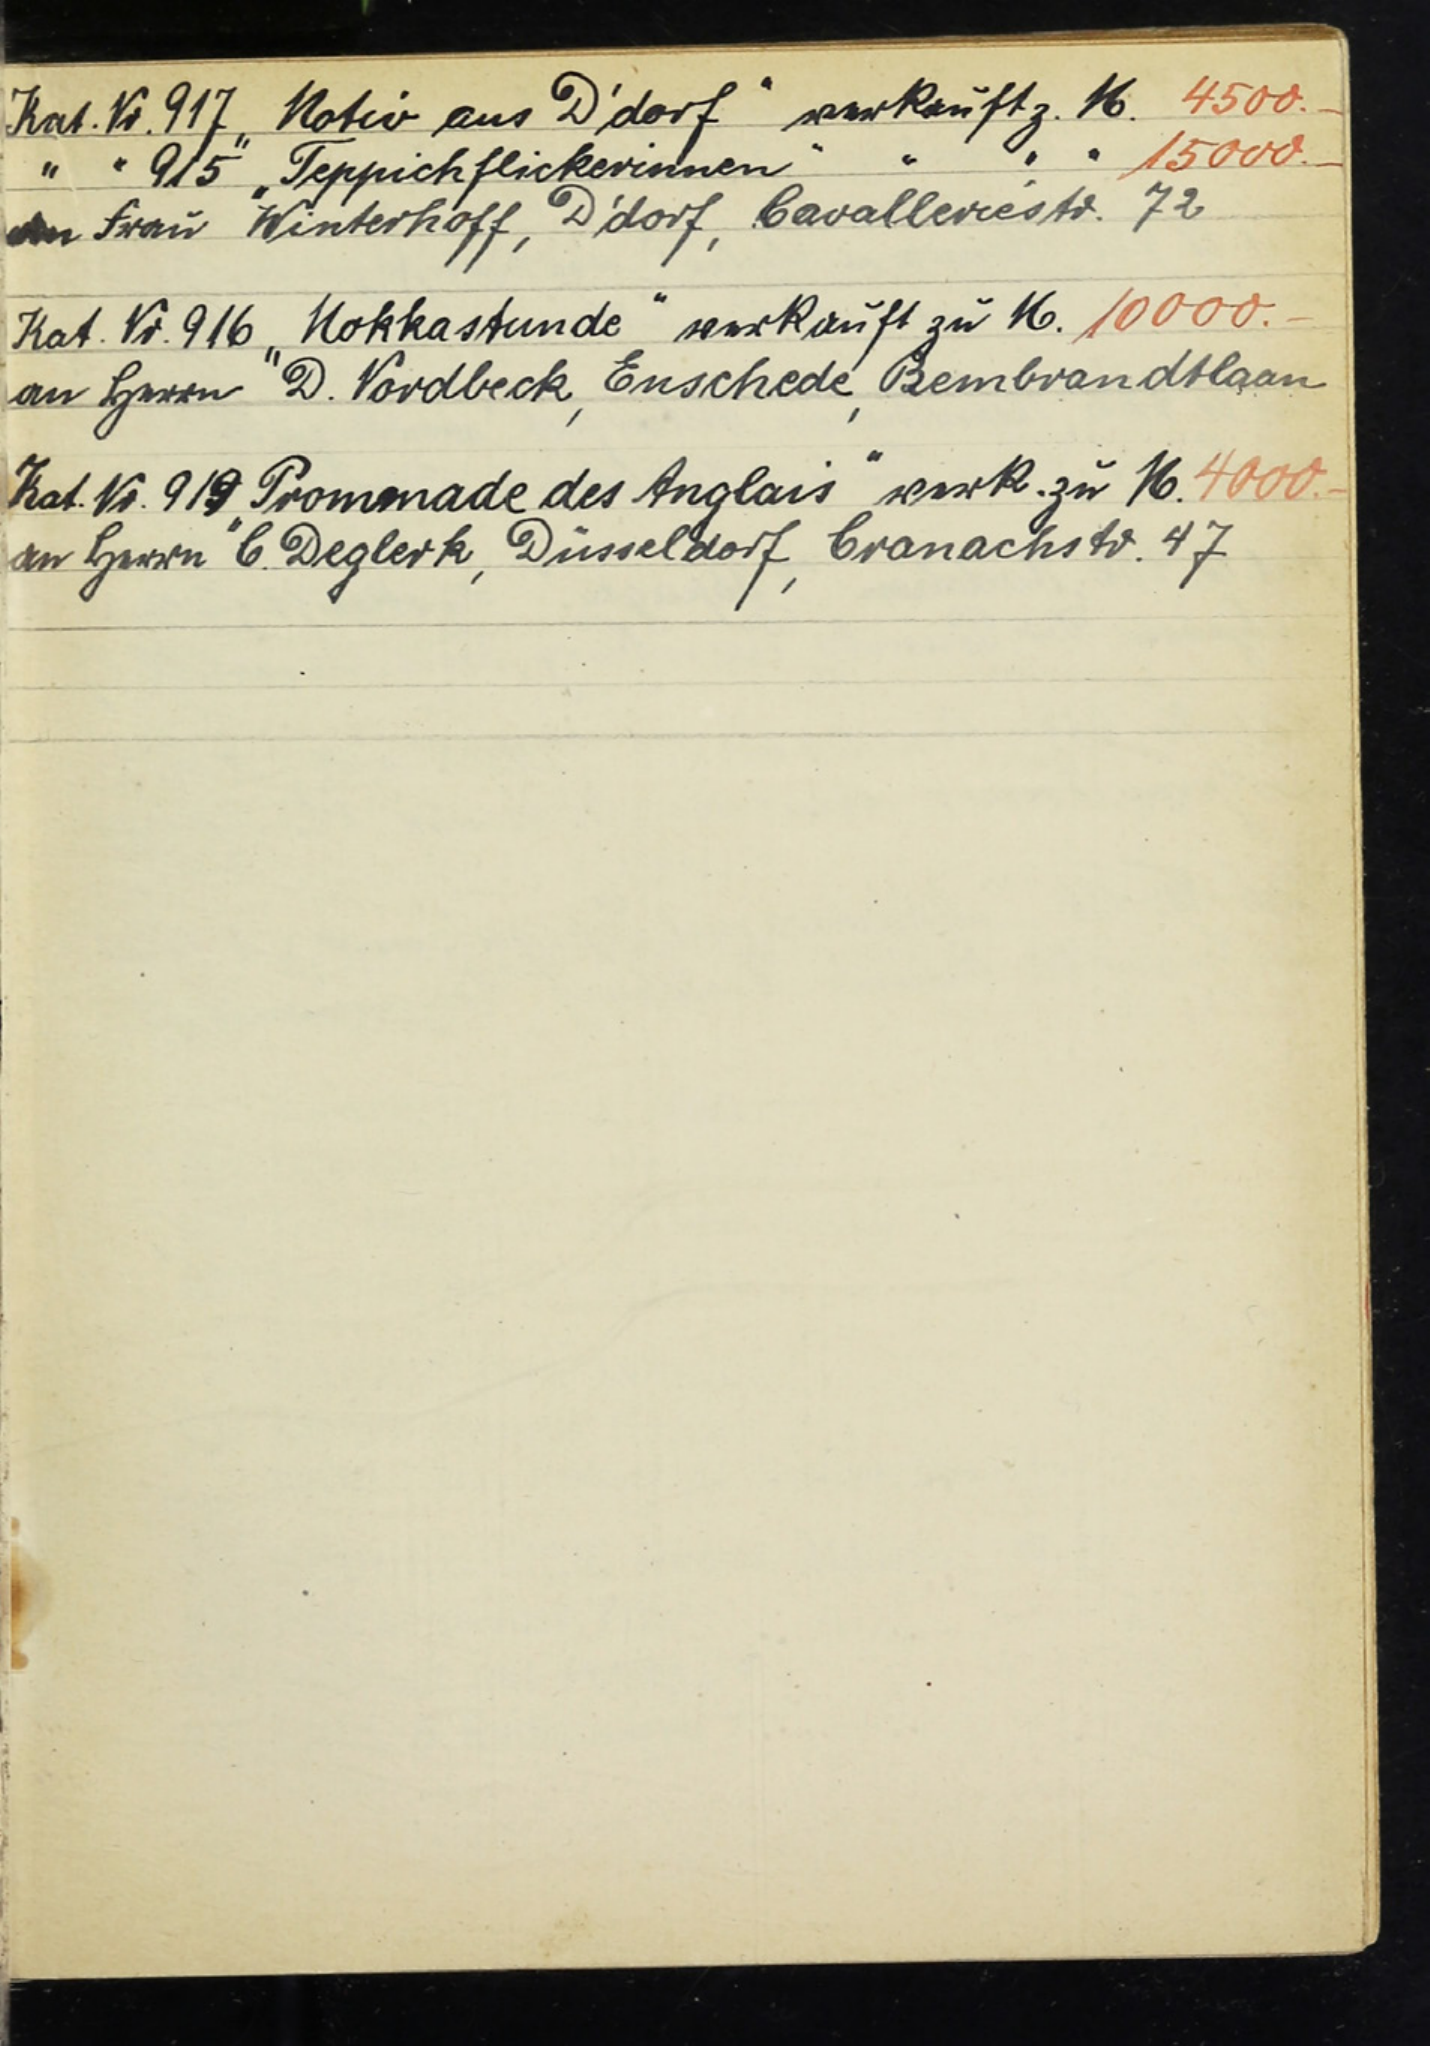 Kat. Nr. 917 „Motiv aus D'dorf“ verkauft z. M. 4500.—
" " 915 „Teppichflickerinnen“ " " " 15000.—
an Frau Winterhoff, D'dorf, Cavalleriestr. 72
Kat. Nr. 916 „Mokkastunde“ verkauft zu M. 10000.—
an Herrn D. Nordbeck, Enschede, Rembrandtlaan
Kat. Nr. 919 „Promenade des Anglais“ verk. zu M. 4000.—
an Herrn C. Deglerk, Düsseldorf, Cranachstr. 47